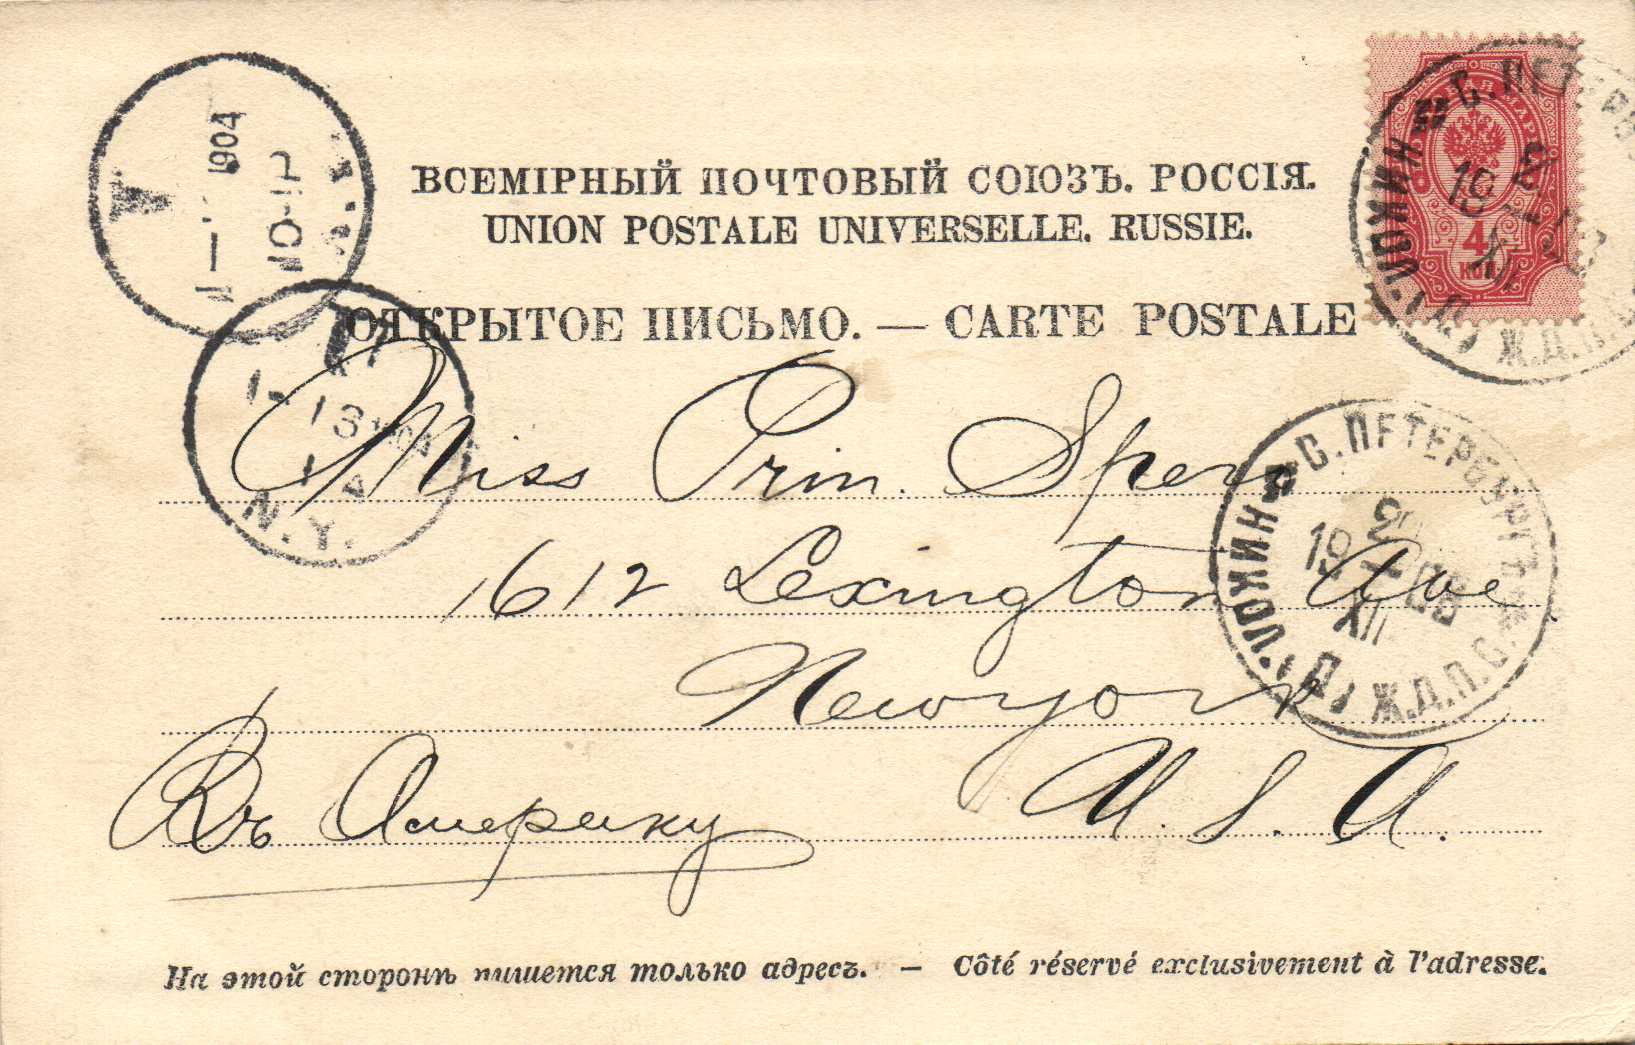 ВСЕМІРНЫЙ ПОЧТОВЫЙ СОЮЗЪ. РОССІЯ.
UNION POSTALE UNIVERSELLE. RUSSIE.
ОТКРЫТОЕ ПИСЬМО. — CARTE POSTALE
1904
4
КОП.
С. ПЕТЕР
19
XII
Ж.Д.П.
1-13
1904
N.Y.
Miss Prin. Spero
1612 Lexington Ave
New York
Въ Америку U. S. A.
С. ПЕТЕРБУРГЪ
19 03
XII
Ж.Д.П.С.
На этой сторонѣ пишется только адресъ. — Côté réservé exclusivement à l'adresse.